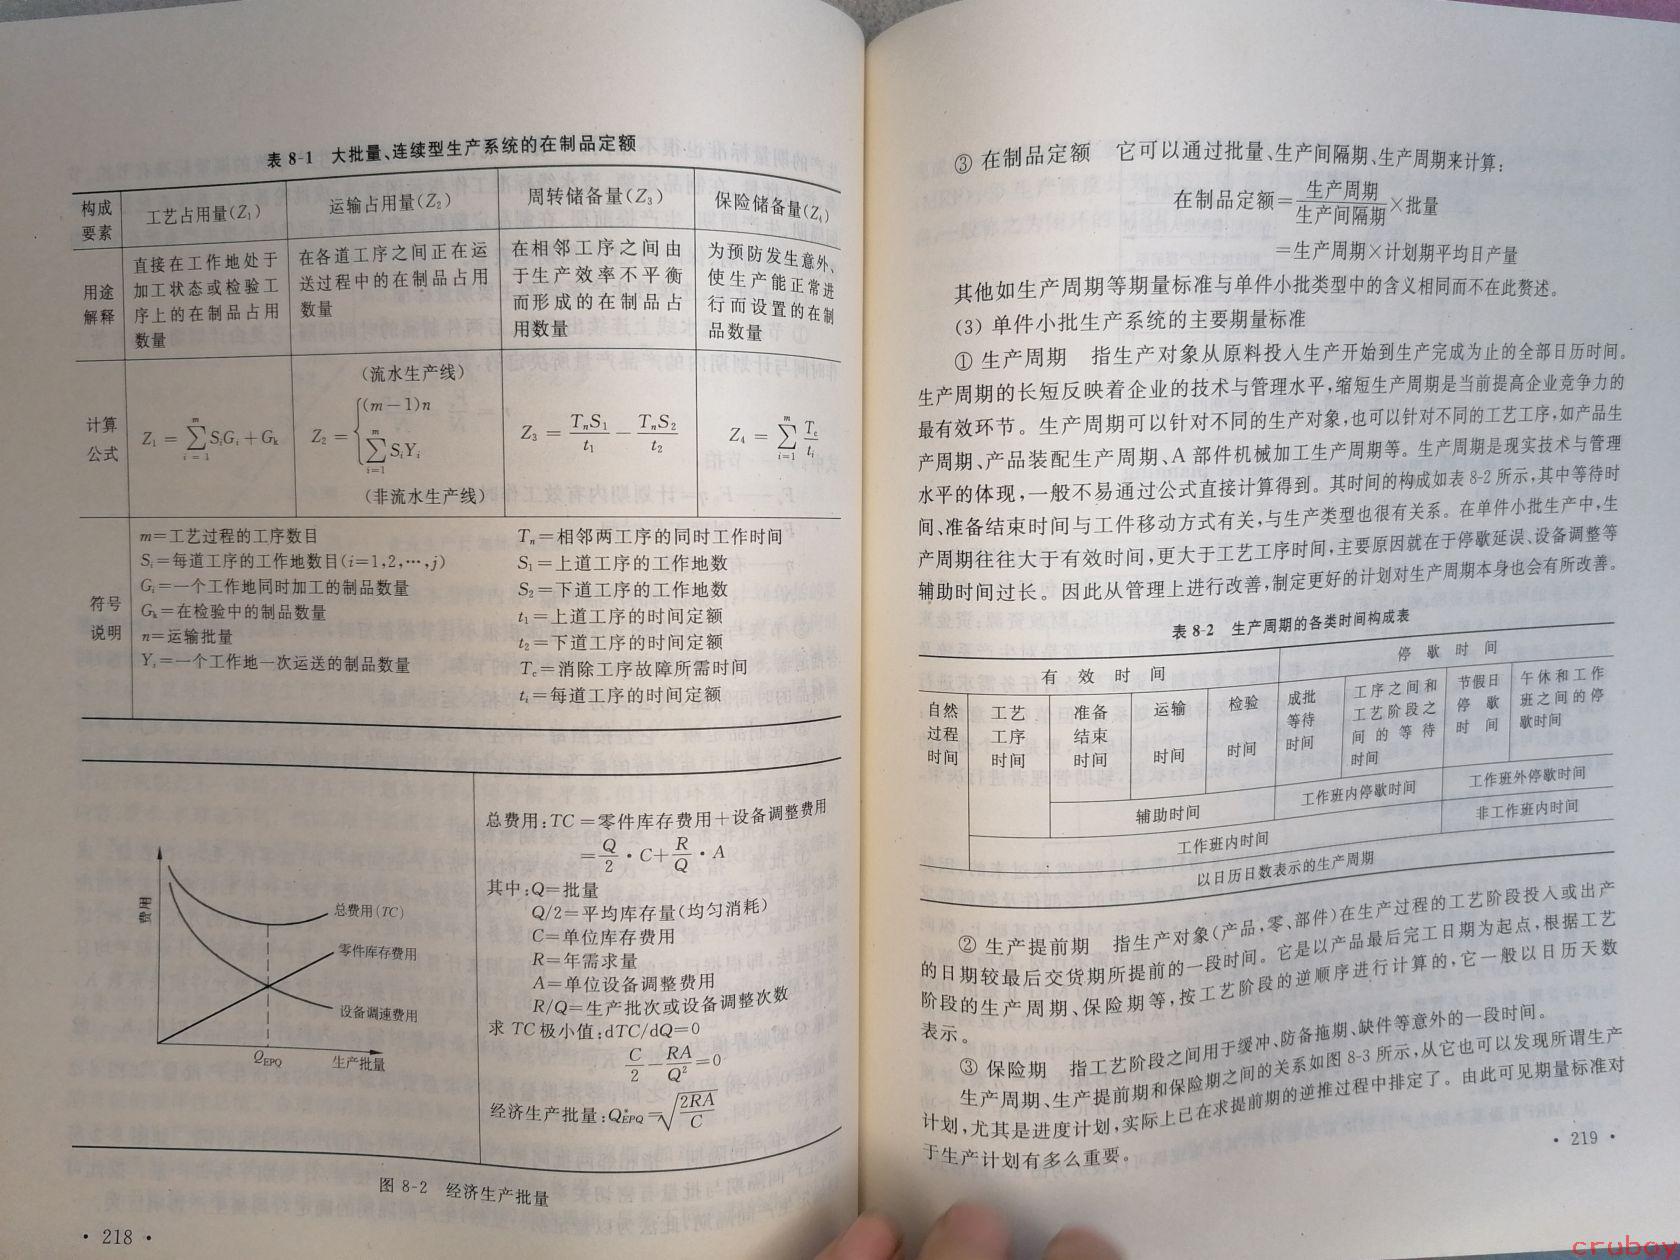 表 8-1 大批量、连续型生产系统的在制品定额
构成要素 工艺占用量(Z₁) 运输占用量(Z₂) 周转储备量(Z₃) 保险储备量(Z₄)
用途解释
直接在工作地处于
加工状态或检验工
序上的在制品占用
数量
在各道工序之间正在运
送过程中的在制品占用
数量
在相邻工序之间由
于生产效率不平衡
而形成的在制品占
用数量
为预防发生意外、
使生产能正常进
行而设置的在制
品数量
计算公式
Z₁ = ∑(i=1→m) SᵢGᵢ + Gₖ
(流水生产线)
Z₂ = { (m-1)n
∑(i=1→m) SᵢYᵢ
(非流水生产线)
Z₃ = TₙS₁/t₁ - TₙS₂/t₂
Z₄ = ∑(i=1→m) Tₑ/tᵢ
符号说明
m=工艺过程的工序数目
Sᵢ=每道工序的工作地数目(i=1,2,…,j)
Gᵢ=一个工作地同时加工的制品数量
Gₖ=在检验中的制品数量
n=运输批量
Yᵢ=一个工作地一次运送的制品数量
Tₙ=相邻两工序的同时工作时间
S₁=上道工序的工作地数
S₂=下道工序的工作地数
t₁=上道工序的时间定额
t₂=下道工序的时间定额
Tₑ=消除工序故障所需时间
tᵢ=每道工序的时间定额
费用
总费用(TC)
零件库存费用
设备调速费用
Q_EPQ
生产批量
总费用:TC=零件库存费用+设备调整费用
=Q/2·C+R/Q·A
其中:Q=批量
Q/2=平均库存量(均匀消耗)
C=单位库存费用
R=年需求量
A=单位设备调整费用
R/Q=生产批次或设备调整次数
求 TC 极小值:dTC/dQ=0
C/2-RA/Q²=0
经济生产批量:Q*_EPQ=√(2RA/C)
图 8-2 经济生产批量
· 218 ·
③ 在制品定额 它可以通过批量、生产间隔期、生产周期来计算:
在制品定额=生产周期/生产间隔期×批量
=生产周期×计划期平均日产量
其他如生产周期等期量标准与单件小批类型中的含义相同而不在此赘述。
(3) 单件小批生产系统的主要期量标准
① 生产周期 指生产对象从原料投入生产开始到生产完成为止的全部日历时间。
生产周期的长短反映着企业的技术与管理水平,缩短生产周期是当前提高企业竞争力的
最有效环节。生产周期可以针对不同的生产对象,也可以针对不同的工艺工序,如产品生
产周期、产品装配生产周期、A 部件机械加工生产周期等。生产周期是现实技术与管理
水平的体现,一般不易通过公式直接计算得到。其时间的构成如表 8-2 所示,其中等待时
间、准备结束时间与工件移动方式有关,与生产类型也很有关系。在单件小批生产中,生
产周期往往大于有效时间,更大于工艺工序时间,主要原因就在于停歇延误、设备调整等
辅助时间过长。因此从管理上进行改善,制定更好的计划对生产周期本身也会有所改善。
表 8-2 生产周期的各类时间构成表
有效时间 停歇时间
自然过程时间
工艺工序时间
准备结束时间
运输时间
检验时间
成批等待时间
工序之间和工艺阶段之间的等待时间
节假日停歇时间
午休和工作班之间的停歇时间
辅助时间 工作班内停歇时间 工作班外停歇时间
工作班内时间 非工作班内时间
以日历日数表示的生产周期
② 生产提前期 指生产对象(产品,零、部件)在生产过程的工艺阶段投入或出产
的日期较最后交货期所提前的一段时间。它是以产品最后完工日期为起点,根据工艺
阶段的生产周期、保险期等,按工艺阶段的逆顺序进行计算的,它一般以日历天数
表示。
③ 保险期 指工艺阶段之间用于缓冲、防备拖期、缺件等意外的一段时间。
生产周期、生产提前期和保险期之间的关系如图 8-3 所示,从它也可以发现所谓生产
计划,尤其是进度计划,实际上已在求提前期的逆推过程中排定了。由此可见期量标准对
于生产计划有多么重要。
· 219 ·
cruboy